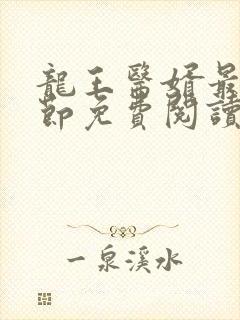 龍王醫婿最
節免費閱讀
一泉溪水